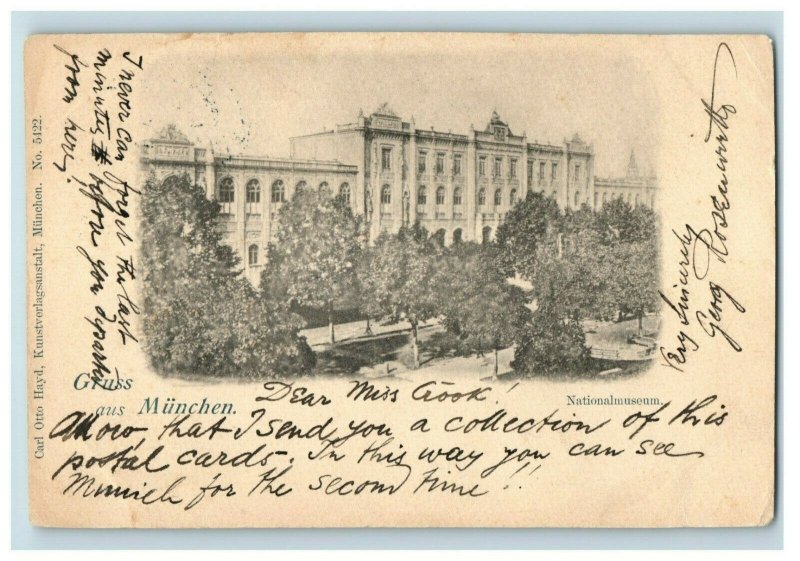 Gruss
aus München.
Nationalmuseum.
Carl Otto Hayd, Kunstverlagsanstalt, München. No. 5422.
Dear Miss Cook!
Allow, that I send you a collection of this
postal cards. In this way you can see
Munich for the second time!!
I never can forget the last
minutes before you
from here!
Very sincerely
Georg Rosenwirth